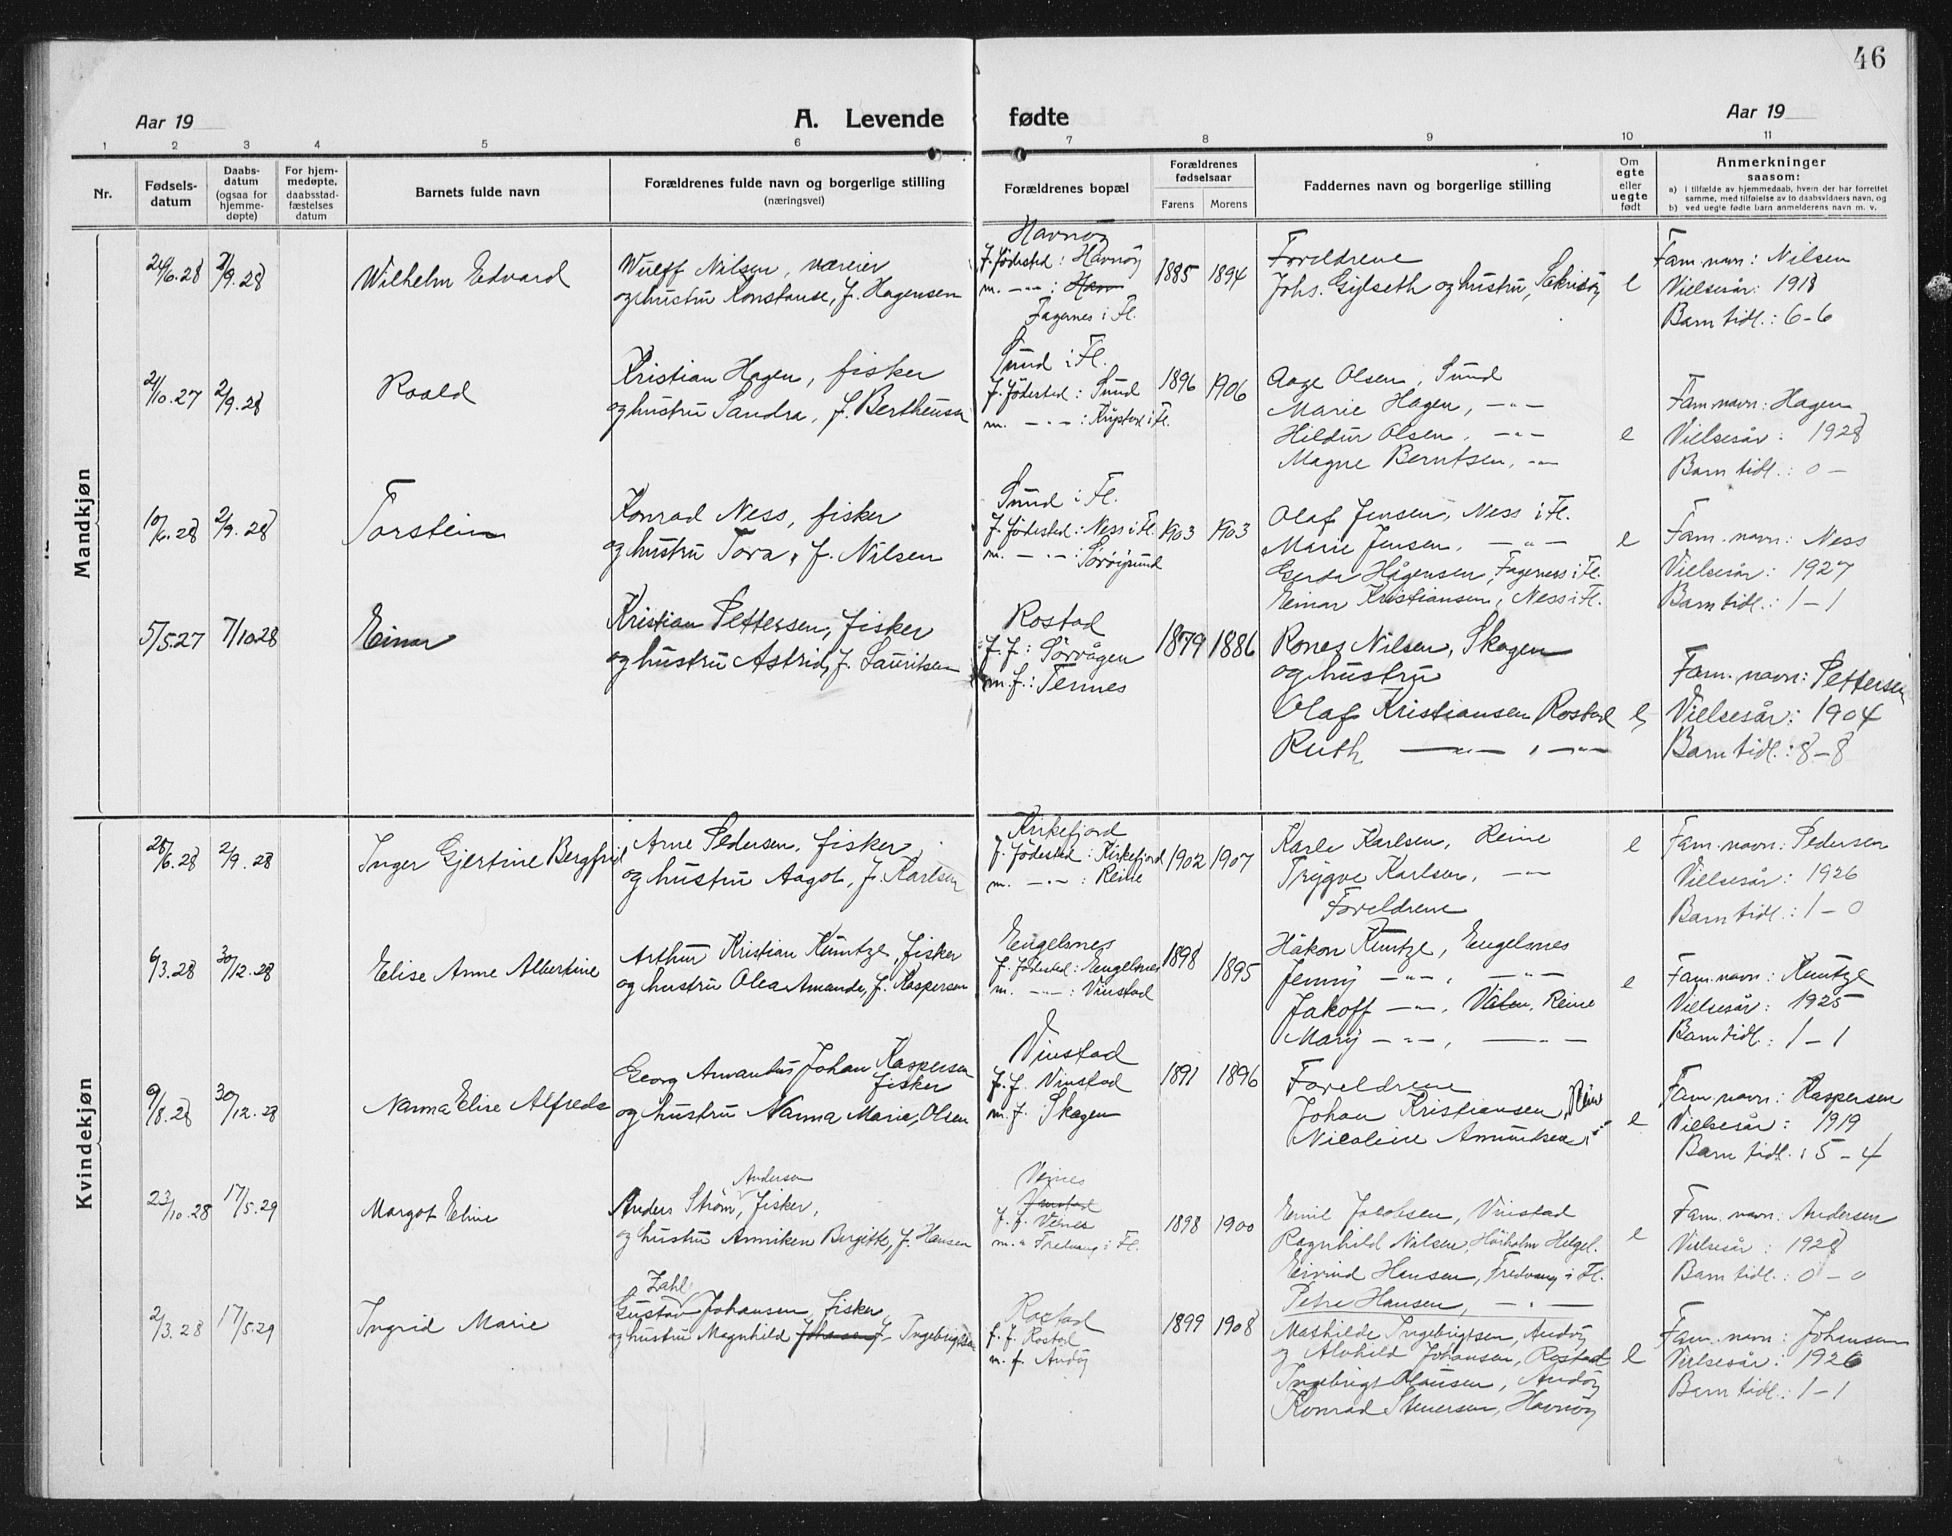 46
Aar 19
A. Levende fødte
Aar 19
1 2 3 4 5 6 7 8 9 10 11
Nr.
Fødsels-
datum
Daabs-
datum
(ogsaa for
hjemme-
døpte)
For hjem-
medøpte,
daabsstad-
fæstelses
datum
Barnets fulde navn
Forældrenes fulde navn og borgerlige stilling
(næringsvei)
Forældrenes bopæl
Forældrenes
fødselsaar
Farens Morens
Faddernes navn og borgerlige stilling
Om
egte
eller
uegte
født
Anmerkninger
saasom:
a) I tilfælde av hjemmedaab, hvem der har forrettet
samme, med tilføielse av to daabsvidners navn, og
b) ved uegte fødte barn anmelderens navn m. v.
Mandkjøn
2/9.28
Wilhelm Edvard
Wulff Nilsen, væreier
og hustru Konstanse, f. Hagensen
Havnøy
f. fødested: Havnøy
m. -"- : Havn
Fagernes i Fl.
1885 1894
Foreldrene
Johs. Gylseth og hustru, Sakrisøy
e
Fam. navn: Nilsen
Vielsesår: 1918
Barn tidl.: 6-6
21/10.27 2/9.28
Roald
Kristian Hagen, fisker
og hustru Sandra, f. Bertheussen
Sund i Fl.
f. fødested: Sund
m. -"- : Krystad i Fl.
1896 1906
Aage Olsen, Sund
Marie Hagen, -"-
Hildur Olsen, -"-
Magne Berntsen, -"-
e
Fam. navn: Hagen
Vielsesår: 1928
Barn tidl.: 0 -
10/6.28 2/9.28
Torstein
Konrad Ness, fisker
og hustru Tora, f. Nilsen
Sund i Fl.
f. fødested: Ness i Fl.
m. -"- : Sørøysund
1903 1903
Olaf Jensen, Ness i Fl.
Marie Jensen, -"-
Gerda Hågensen, Fagerness i Fl.
Einar Kristiansen, Ness i Fl.
e
Fam. navn: Ness
Vielsesår: 1927
Barn tidl.: 1-1
5/5.27 7/10.28
Einar
Kristian Pettersen, fisker
og hustru Astrid, f. Lauritsen
Rostad
f. f.: Sørvågen
m. f.: Tennes
1879 1886
Rones Nilsen, Skagen
og hustru
Olaf Kristiansen Rostad
Ruth -"-, -"-
e
Fam. navn: Pettersen
Vielsesår: 1904
Barn tidl.: 8-8
Kvindekjøn
28/6.28 2/9.28
Inger Gjertine Bergfrid
Arne Pedersen, fisker
og hustru Aagot, f. Karlsen
Kirkefjord
f. fødested: Kirkefjord
m. -"- : Reine
1902 1907
Karle Karlsen, Reine
Trygve Karlsen, -"-
Foreldrene
e
Fam. navn: Pedersen
Vielsesår: 1926
Barn tidl.: 1-0
6/3.28 30/12.28
Elise Anne Albertine
Arthur Kristian Kuntze, fisker
og hustru Olea Amanda, f. Kaspersen
Engelsnes
f. fødested: Engelsnes
m. -"- : Vinstad
1898 1895
Håkon Kuntze, Engelsnes
Jenny -"-, -"-
Jakoff -"-, Valen, Reine
Mary -"-, -"-
e
Fam. navn: Kuntze
Vielsesår: 1925
Barn tidl.: 1-1
9/8.28 30/12.28
Nanna Elise Alfreda
Georg Amandus Johan Kaspersen
fisker
og hustru Nanna Marie, Olsen
Vinstad
f. f. Vinstad
m. f. Skagen
1891 1896
Foreldrene
Johan Kristiansen, Reine
Nicoline Amundsen, -"-
e
Fam. navn: Kaspersen
Vielsesår: 1919
Barn tidl.: 5-4
23/10.28 17/5.29
Margot Eline
Andersen
Anders Strøm, fisker,
og hustru Anniken Birgitte, f. Hansen
Veines
Vinstad
f. f. Veines
m. " Fredvang i Fl.
1898 1900
Emil Jacobsen, Vinstad
Ragnhild Nilsen, Helgel.
Eivind Hansen, Fredvang i Fl.
Petra Hansen, -"-
e
Fam. navn: Andersen
Vielsesår: 1928
Barn tidl.: 0-0
2/3.28 17/5.29
Ingrid Marie
Zahl
Gustav Johansen, fisker
og hustru Magnhild Johansen f. Ingebrigtsen
Rostad
f. f. Rostad
m. f. Andøy
1899 1908
Mathilde Ingebrigtsen, Andøy
og Alvhild Johansen, Rostad
Ingebrigt Olausen, Andøy
Konrad Steversen, Havnøy
e
Fam. navn: Johansen
Vielsesår: 1926
Barn tidl.: 1-1